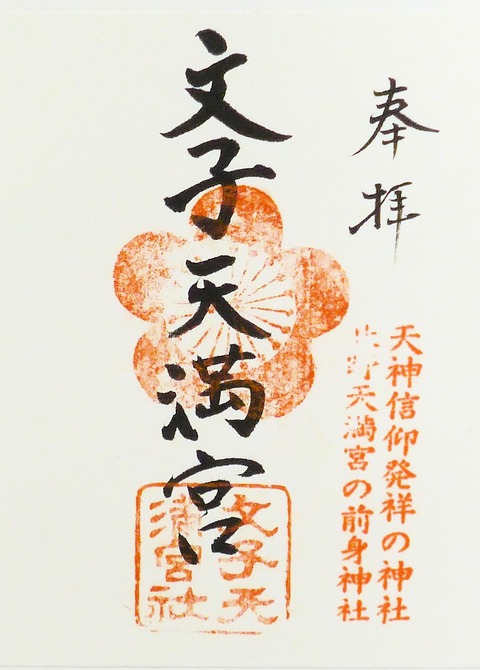 奉拝
天神信仰発祥の神社
天満宮の前身神社
文子天満宮
文子天
満宮社